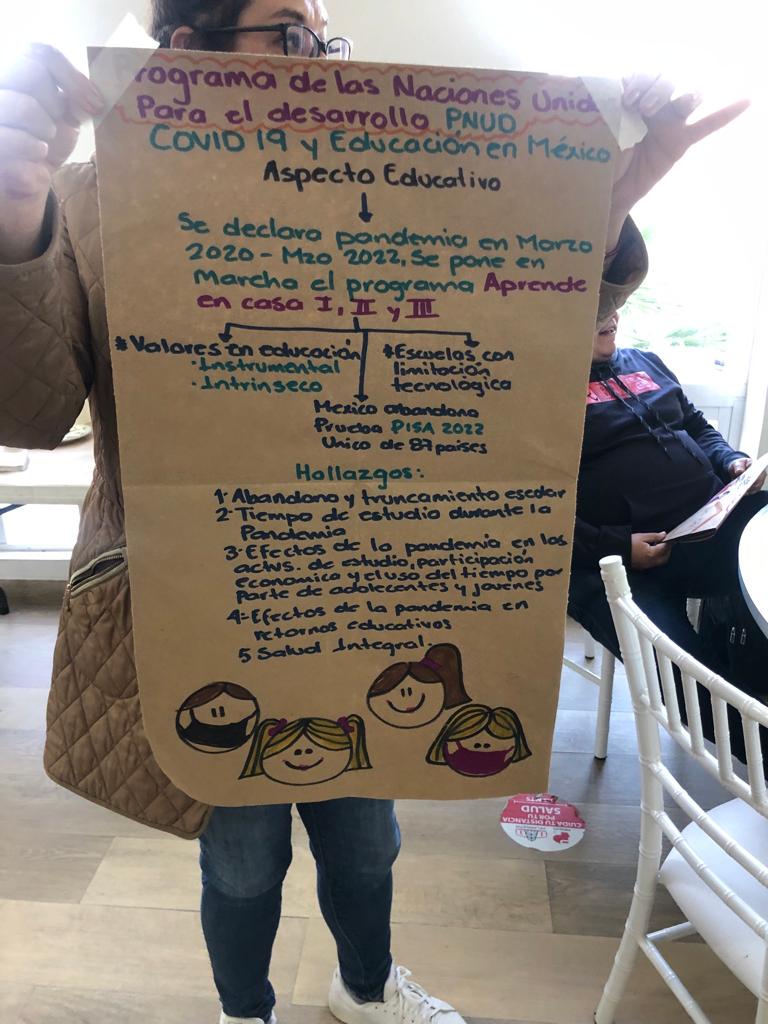 Programa de las Naciones Unid
Para el desarrollo PNUD
COVID 19 y Educación en México
Aspecto Educativo
Se declara pandemia en Marzo
2020 - Mzo 2022, Se pone en
Marcha el programa Aprende
en casa I, II y III
*Valores en educación
·Instrumental
·Intrinseco
*Escuelas con
limitación
tecnológica
Mexico abandona
Prueba PISA 2022
Unico de 87 paises
Hallazgos:
1-Abandono y truncamiento escolar
2-Tiempo de estudio durante la
Pandemia
3-Efectos de la pandemia en las
activs. de estudio, participación
economica y el uso del tiempo por
parte de adolecentes y jovenes
4=Efectos de la pandemia en
retornos educativos
5 Salud Integral.
CUIDA TU DISTANCIA
POR TU
SALUD